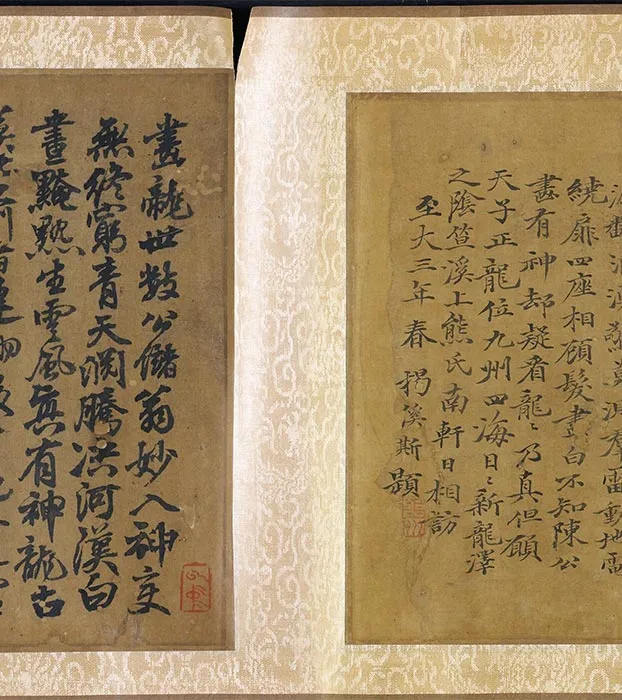 羣雷動地雷
繞扉四座相顧髮盡白不知陳公
畫有神却疑看龍〻乃真但願
天子正龍位九州四海日〻新龍澤
之隂笪溪上熊氏南軒日相訪
至大三年春 揭傒斯題
畫龍世數公儲翁妙入神变
無終窮青天濶騰洪河漢白
晝黤黮生雲風真有神龍古